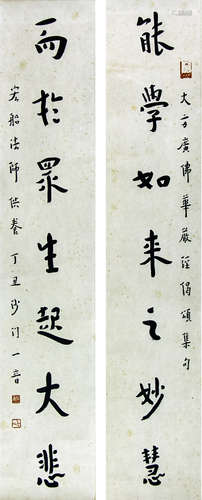 大方廣佛華嚴經偈頌集句
能學如来之妙慧
而於眾生起大悲
岩船法師供養 丁丑沙门一音